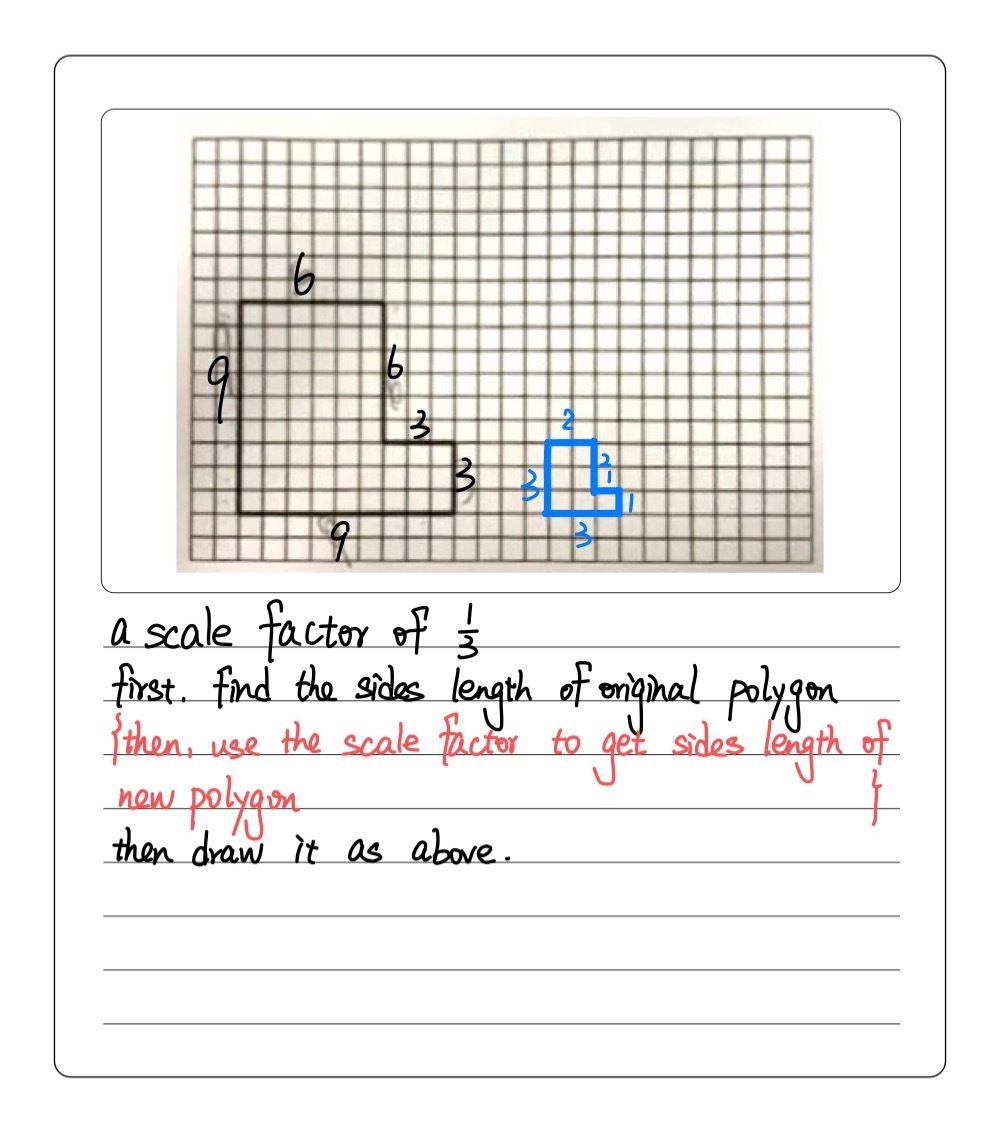 6
9
6
3
3
9
2
3
2
1
1
3
a scale factor of 1/3
first. find the sides length of original polygon
{then, use the scale factor to get sides length of
new polygon }
then draw it as above.